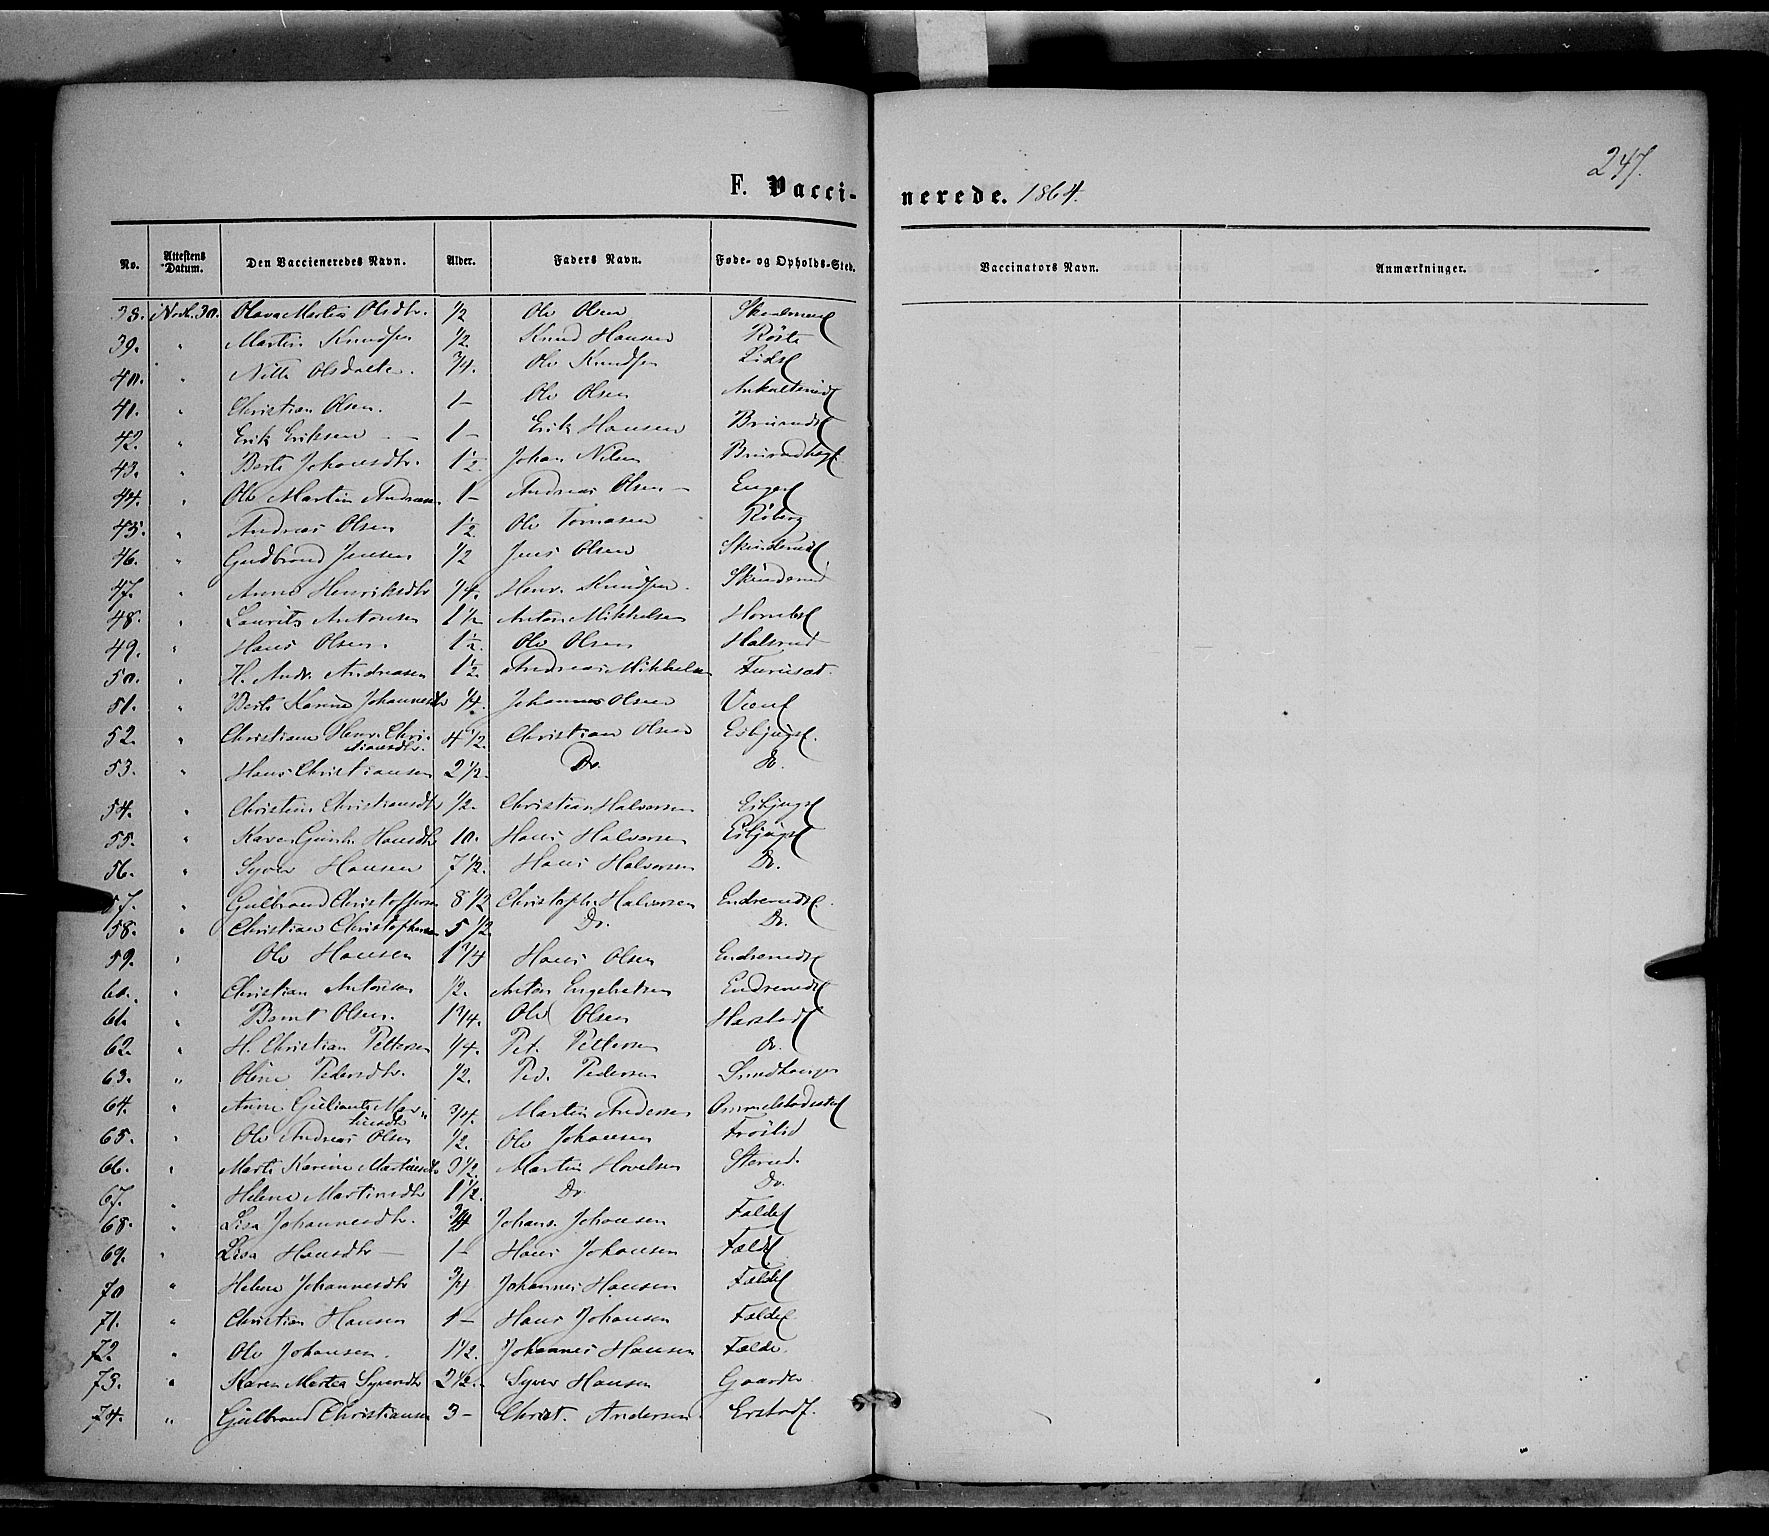 247.
F. Vaccinerede. 1864.
No. Attestens Datum. Den Vaccieneredes Navn. Alder. Faders Navn. Føde- og Opholds-Sted. Vaccinators Navn. Anmærkninger.
38. Novb. 30. Olava Martea Olsdtr. 1/2 Ole Olsen
39. " Martin Knudsen 1/2. Knud Hansen Röste
40. " Olsdatter. 3/4. Ole Knudsen
41. " Christian Olsen. 1 – Ole Olsen
42. " Erik Eriksen – 1 – Erik Hansen
43. " Berte Johansdtr. 1 1/2. Johan Nilsen
44. " Ole Martin Andreasen 1 – Andreas Olsen –
45. " Andreas Olsen 1 1/2. Ole Tomasen Röberg
46. " Gudbrand Jensen 1/2 Jens Olsen
47. " Anne Henriksdtr 1/4. Henr. Knudsen.
48. " Laurits Antonsen 1 1/2 Anton Mikkelsen
49. " Hans Olsen. 1 1/2. Ole Olsen Halsrud
50. " H. Andr. Andreasen 1 1/2. Andreas Mikkelsen Furuset.
51. " Berte Karine Johannesdtr 1/4. Johannes Olsen
52. " Christiane Henr. Christiansdtr. 4 1/2. Christian Olsen
53. " Hans Christiansen 2 1/2. Do. do.
54. " Christine Christiansdtr 1/2. Christian Halvorsen
55. " Karen Hansdtr 10. Hans Halvorsen
56. " Syver Hansen 7 1/2. Hans Halvorsen Do.
57. " Gulbrand Christoffersen 8 1/2 Christopher Halvorsen
58. " Christian Christophersen 5 1/2 Do. Do.
59. " Ole Hansen 1 3/4 Hans Olsen
60. " Christian Antonsen 1/2. Anton Engebretsen
61. " Bernt Olsen. 1 3/4. Ole Olsen
62. " H. Christian Pettersen 1/4. Pet. Pettersen do.
63. " Oline Pedersdtr. 1/2. Ped. Pedersen
64. " Anne Martinsdtr 3/4. Martin Andersen
65. " Ole Andreas Olsen 1/2. Ole Johansen Fröslid
66. " Marte Karine Martinsdtr 3 1/2. Martin Hovelsen
67. " Helene Martinsdtr 1 1/2. Do. Do.
68. " Lisa Johannesdtr. 3/4 Johans. Johansen
69. " Lisa Hansdtr – 1 – Hans Johansen
70 " Helene Johannesdtr 3/4 Johannes Hansen
71. " Christian Hansen 1 – Hans Johansen
72. " Ole Johansen. 1 1/2. Johannes Hansen
73. " Karen Martea Syversdtr 2 1/2. Syver Hansen Gaarder
74. " Gulbrand Christiansen 3 – Christ. Andersen.